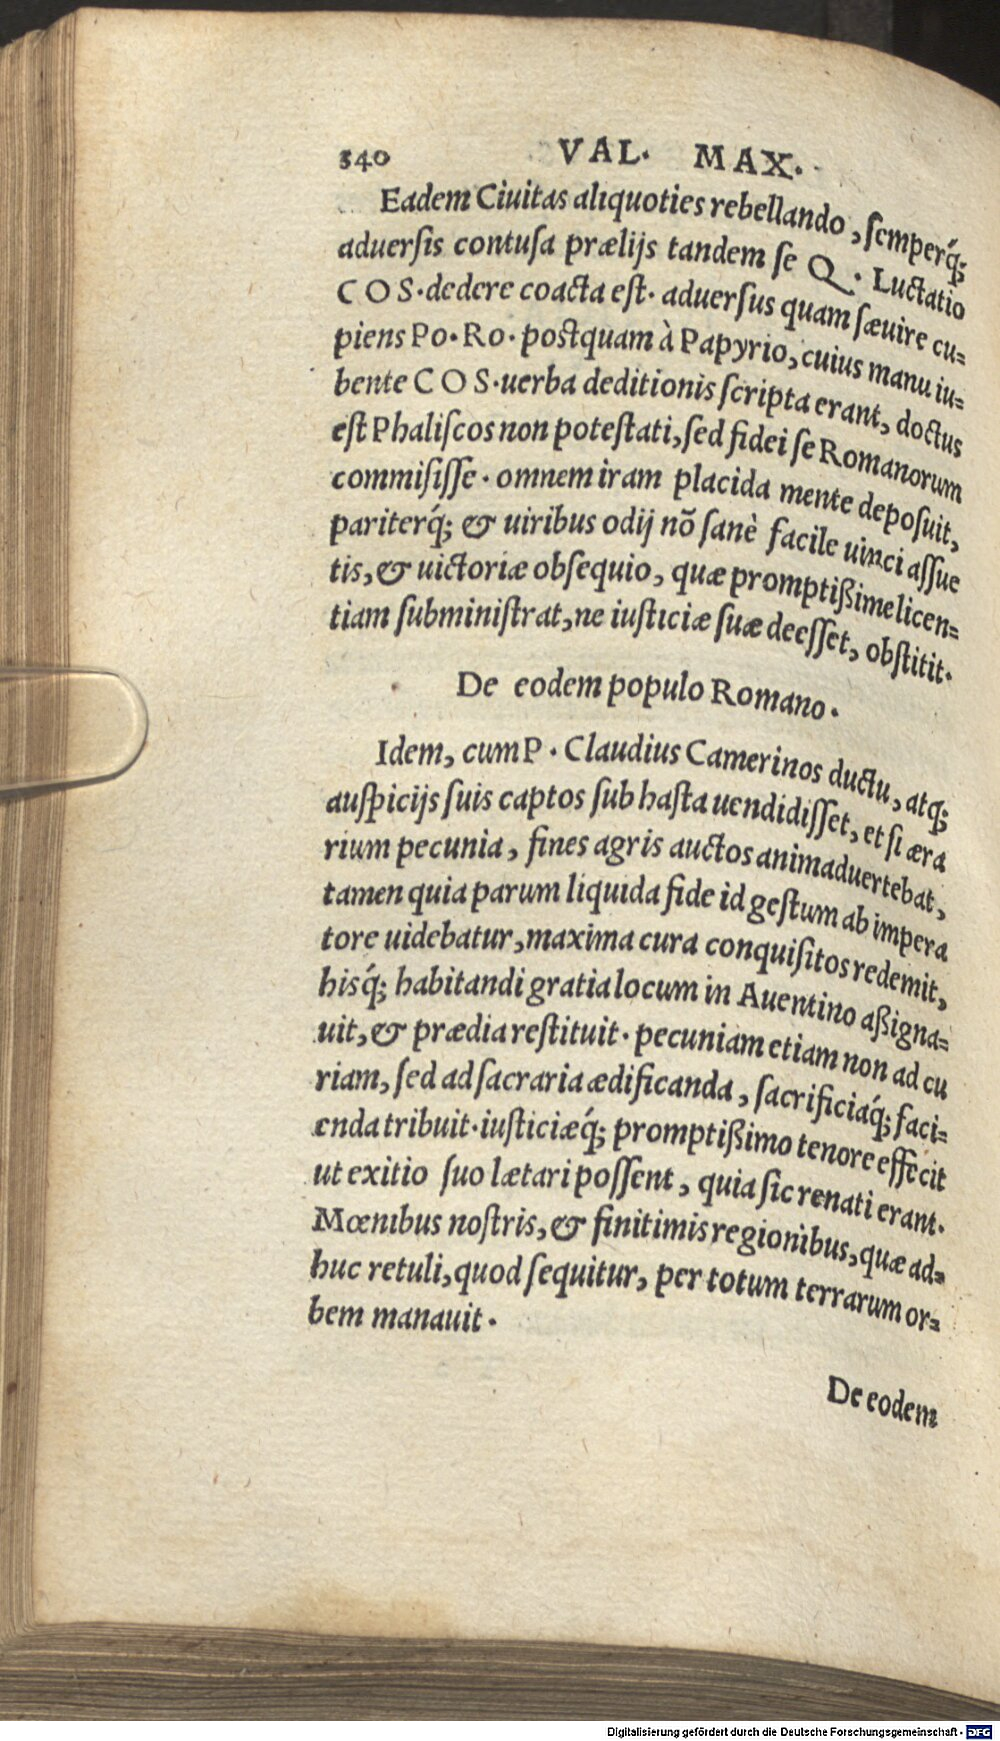 340 VAL. MAX.
Eadem Ciuitas aliquoties rebellando, ſemperq́;
aduerſis contuſa prælijs tandem ſe Q. Luctatio
COS. dedere coacta eſt. aduerſus quam ſæuire cu=
piens Po. Ro. poſtquam à Papyrio, cuius manu iu=
bente COS. uerba deditionis ſcripta erant, doctus
eſt Phaliſcos non poteſtati, ſed fidei ſe Romanorum
commiſiſſe. omnem iram placida mente depoſuit,
pariterq́; & uiribus odij nō ſanè facile uinci aſſue
tis, & uictoriæ obſequio, quæ promptißime licen=
tiam ſubminiſtrat, ne iuſticiæ ſuæ deeſſet, obſtitit.
De eodem populo Romano.
Idem, cum P. Claudius Camerinos ductu, atq;
auſpicijs ſuis captos ſub haſta uendidiſſet, et ſi æra
rium pecunia, fines agris auctos animaduertebat,
tamen quia parum liquida fide id geſtum ab impera
tore uidebatur, maxima cura conquiſitos redemit,
hisq́; habitandi gratia locum in Auentino aßigna=
uit, & prædia reſtituit. pecuniam etiam non ad cu
riam, ſed ad ſacraria ædificanda, ſacrificiaq́; faci=
enda tribuit. iuſticiæq́; promptißimo tenore effecit
ut exitio ſuo lætari poſſent, quia ſic renati erant.
Mœnibus noſtris, & finitimis regionibus, quæ ad=
huc retuli, quod ſequitur, per totum terrarum or=
bem manauit.
De eodem
Digitalisierung gefördert durch die Deutsche Forschungsgemeinschaft - DFG